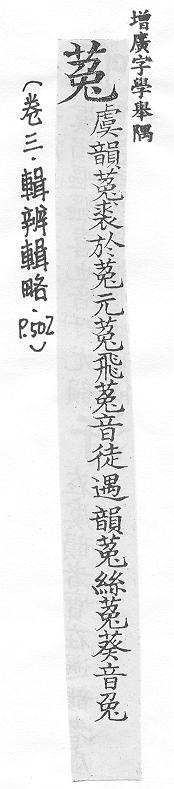 增廣字學舉隅
菟虞韻菟裘於菟元菟飛菟音徒遇韻菟絲菟葵音兔
(卷三．輯辨輯略．P.502)